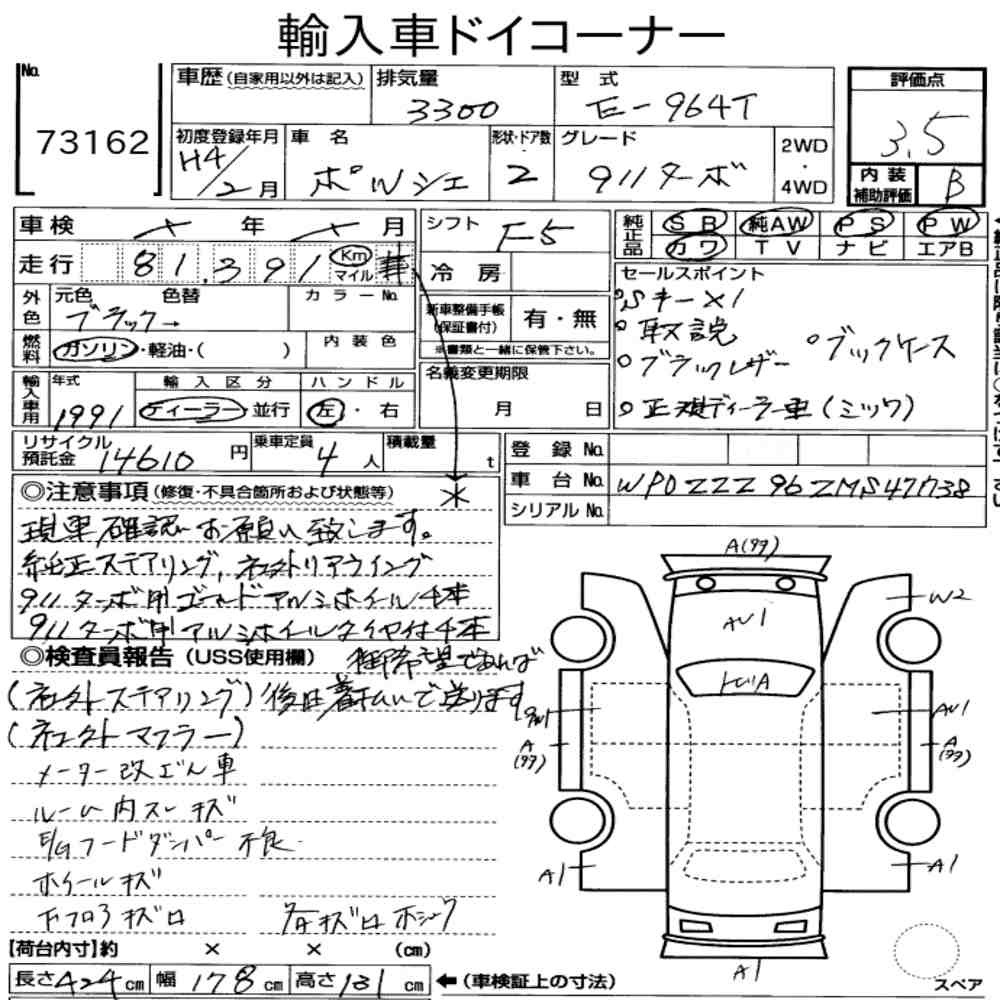 輸入車ドイコーナー
No.
73162
車歴 (自家用以外は記入)
排気量
3300
型 式
E-964T
評価点
3.5
初度登録年月
H4/2月
車 名
ポルシェ
形状・ドア数
2
グレード
911ターボ
2WD
・
4WD
内 装
補助評価
B
車検 年 月
シフト
F5
純正品
SB 純AW PS PW
カワ TV ナビ エアB
走行
81,391 Km
マイル
冷 房
セールスポイント
Sキー×1
○取説
○ブラックレザー ○ブックケース
○正規ディーラー車(ミツワ)
外色
元色 色替
ブラック→
カラーNo.
新車整備手帳
(保証書付)
有・無
※書類と一緒に保管下さい。
燃料
ガソリン・軽油・( )
内 装 色
名義変更期限
月 日
輸入車用
年式
1991
輸 入 区 分
ディーラー・並行
ハ ン ド ル
左・右
リサイクル
預託金
14610 円
乗車定員
4 人
積載量
t
登 録 No.
車 台 No.
WP0ZZZ96ZMS47
シリアル No.
◎注意事項(修復・不具合箇所および状態等)
＊
現車確認お願い致します。
純正ステアリング,ネェクトリアウイング
911ターボ用ゴールドアルミホイール4本
911ターボ用アルミホイールタイヤ付4本
◎検査員報告 (USS使用欄)
御希望であれば
(ネェクトステアリング) 後日着払いで送ります
(ネェクトマフラー)
メーター改ざん車
ルーム内スレ キズ
E/Gフードダンパー不良
ホイールキズ
下フロアキズ
A(タタ)
AU1
W2
トビA
AU1
AU1
A
(タタ)
A
(タタ)
A1
A1
A1
【荷台内寸】約 × × (cm)
長さ424cm 幅178cm 高さ131cm
←(車検証上の寸法)
スペア